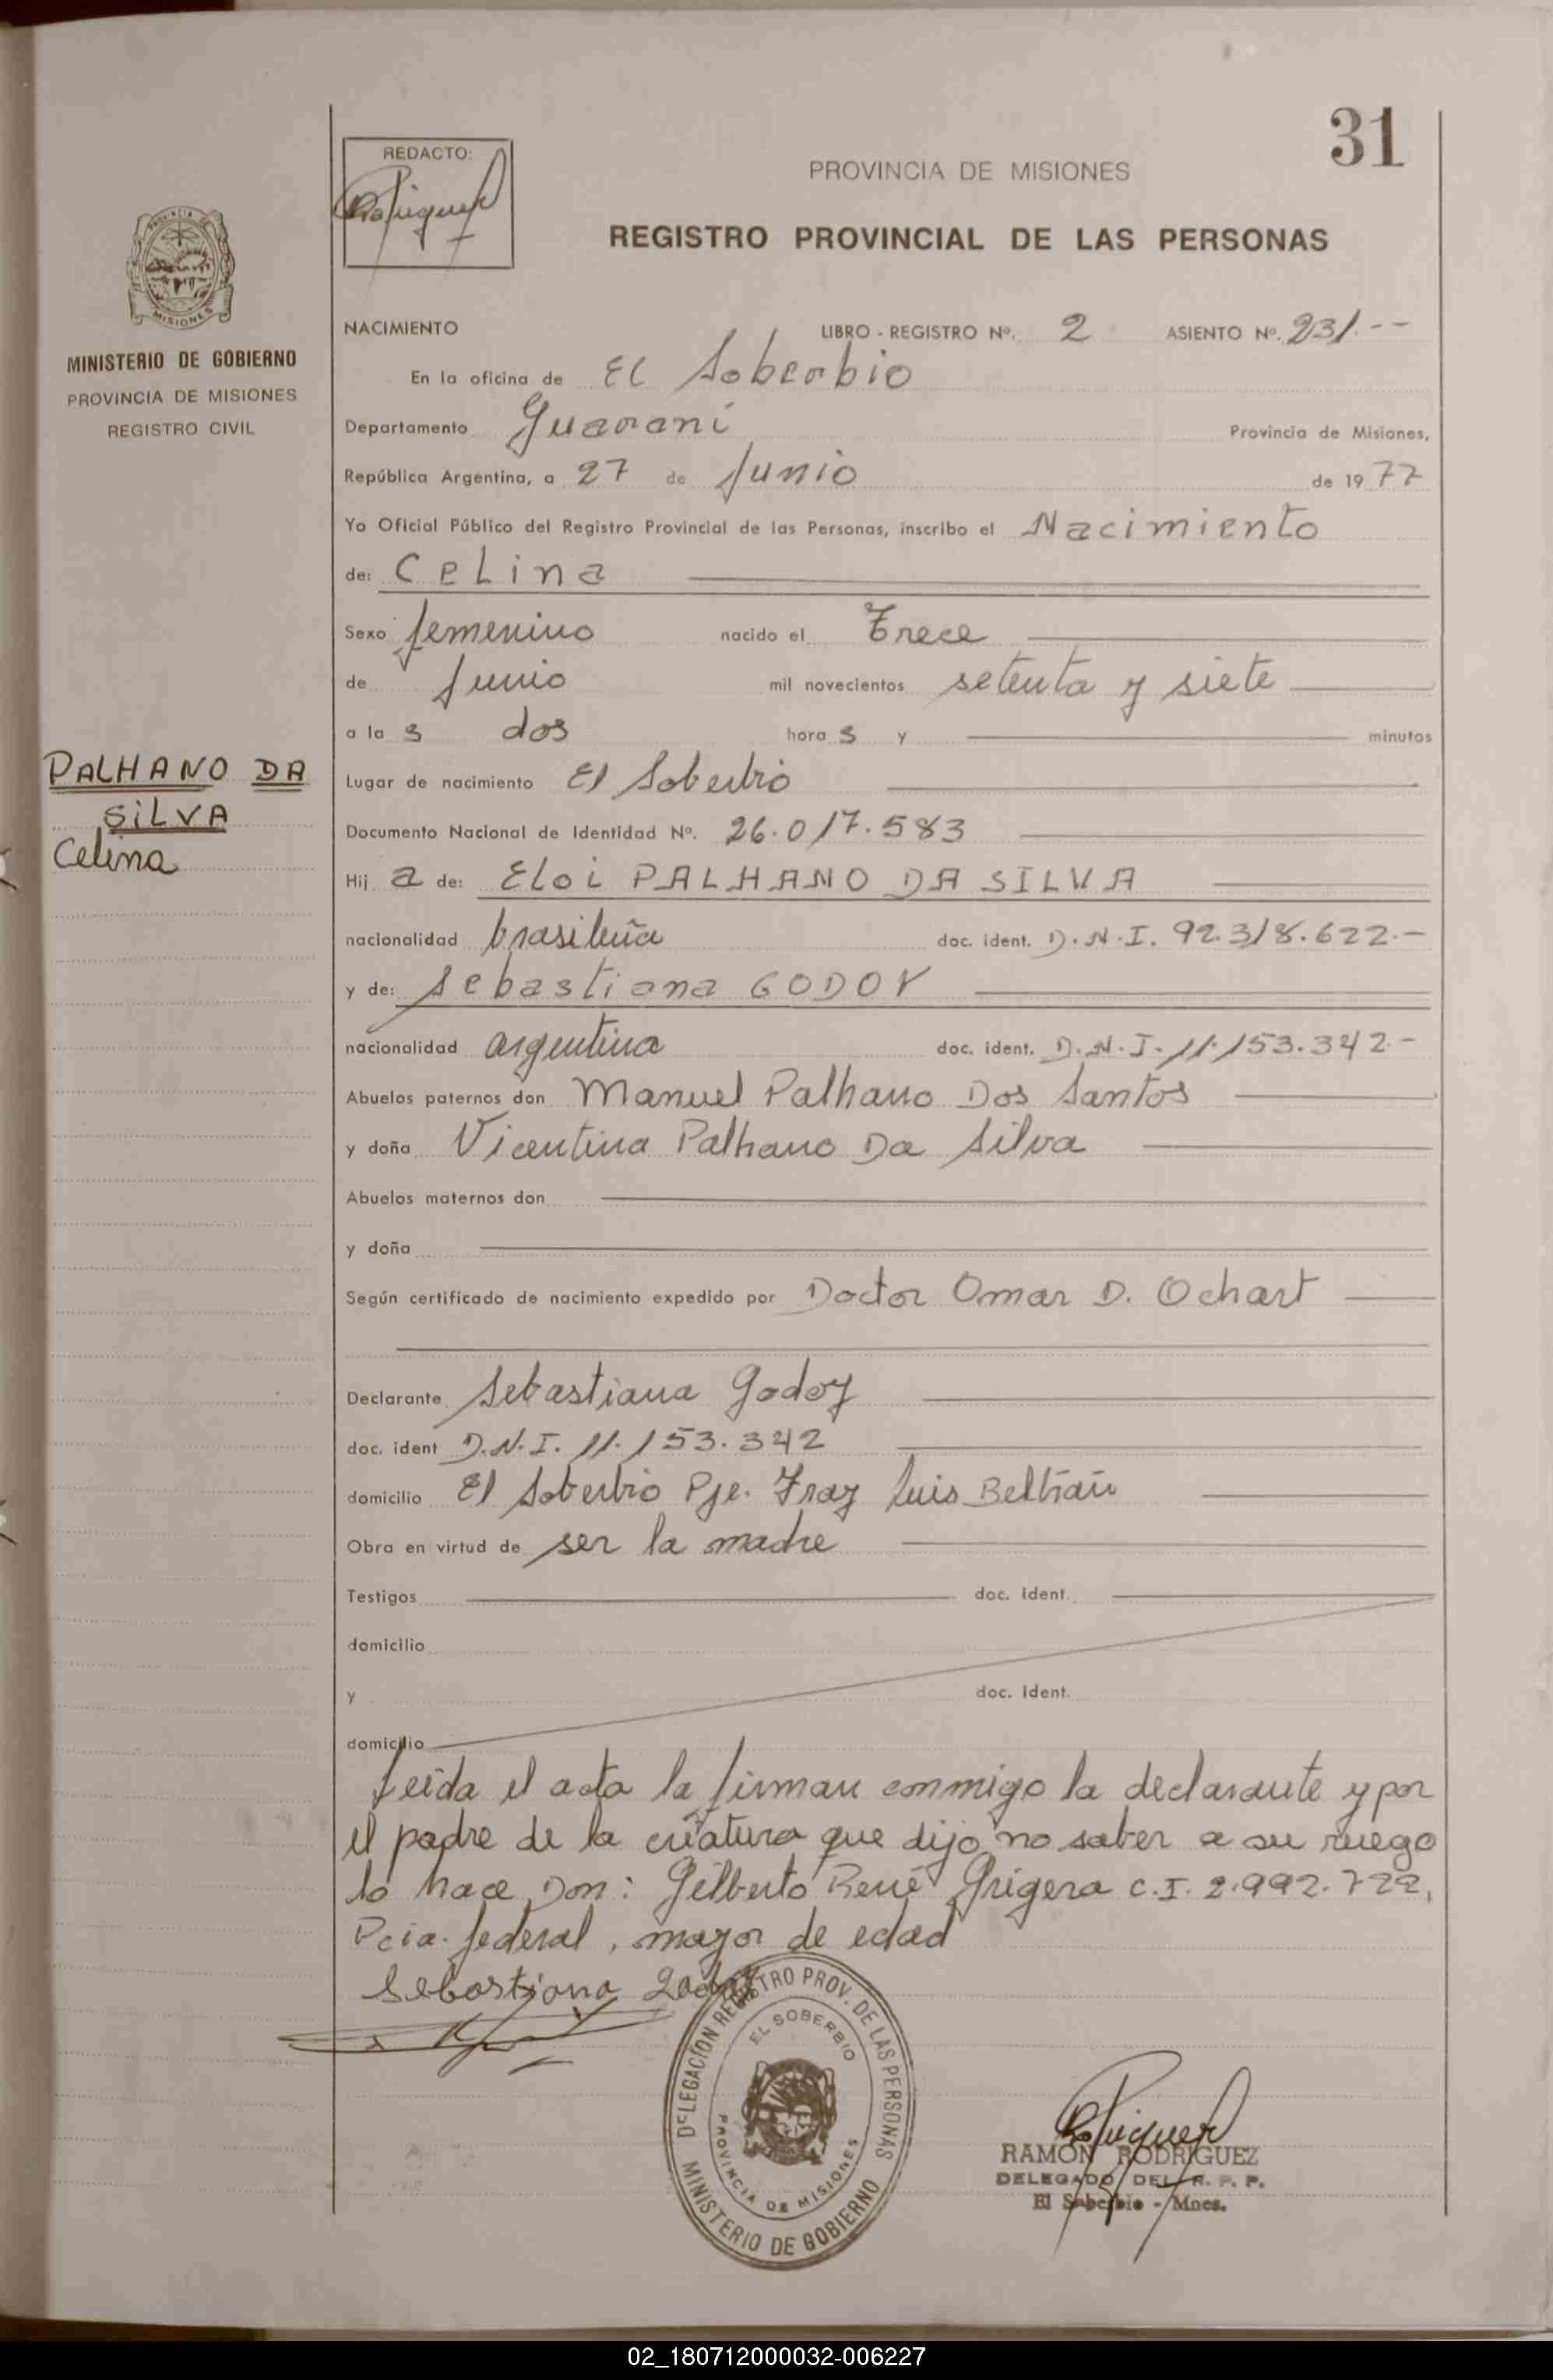 31
REDACTO:
PROVINCIA DE MISIONES
REGISTRO PROVINCIAL DE LAS PERSONAS
MISIONES
MINISTERIO DE GOBIERNO
PROVINCIA DE MISIONES
REGISTRO CIVIL
NACIMIENTO LIBRO - REGISTRO Nº. 2 ASIENTO Nº. 231.--
En la oficina de El Soberbio
Departamento Guarani Provincia de Misiones,
República Argentina, a 27 de Junio de 1977
Yo Oficial Público del Registro Provincial de las Personas, inscribo el Nacimiento
de: Celina
Sexo femenino nacido el Trece
de Junio mil novecientos setenta y siete
a la s dos hora s y minutos
PALHANO DA
SILVA
Celina
Lugar de nacimiento El Soberbio
Documento Nacional de Identidad Nº. 26.017.583
Hij a de: Eloi PALHANO DA SILVA
nacionalidad brasileña doc. ident. D.N.I. 92.318.622.-
y de: Sebastiana GODOY
nacionalidad argentina doc. ident. D.N.I. 11.153.342.-
Abuelos paternos don Manuel Palhano Dos Santos
y doña Vicentina Palhano Da Silva
Abuelos maternos don
y doña
Según certificado de nacimiento expedido por Doctor Omar D. Ochart
Declarante Sebastiana Godoy
doc. ident D.N.I. 11.153.342
domicilio El Soberbio Pje. Fray Luis Beltrán
Obra en virtud de ser la madre
Testigos doc. ident.
domicilio
y doc. ident.
domicilio
Leida el acta la firman conmigo la declarante y por
el padre de la criatura que dijo no saber a su ruego
lo hace Don: Gilberto René Grigera C.I. 2.992.722,
Pcia. federal, mayor de edad
Sebastiana Godoy
DELEGACION REGISTRO PROV. DE LAS PERSONAS
EL SOBERBIO
PROVINCIA DE MISIONES
MINISTERIO DE GOBIERNO
RAMON RODRIGUEZ
DELEGADO DEL R. P. P.
El Soberbio - Mnes.
02_180712000032-006227